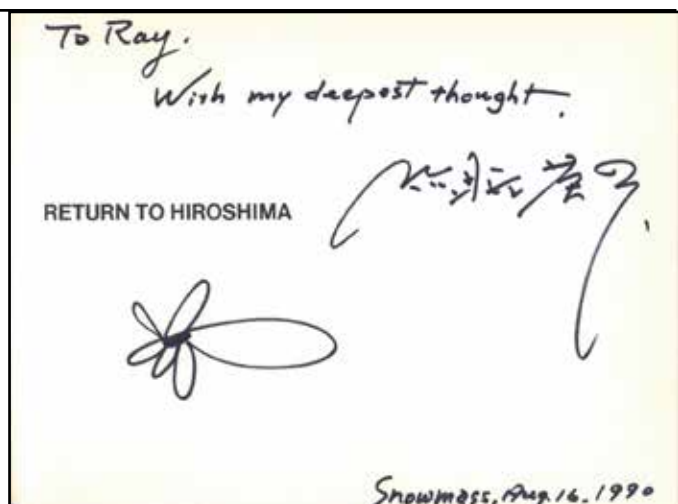 To Ray.
With my deepest thought.
RETURN TO HIROSHIMA
Snowmass, Aug. 16. 1990